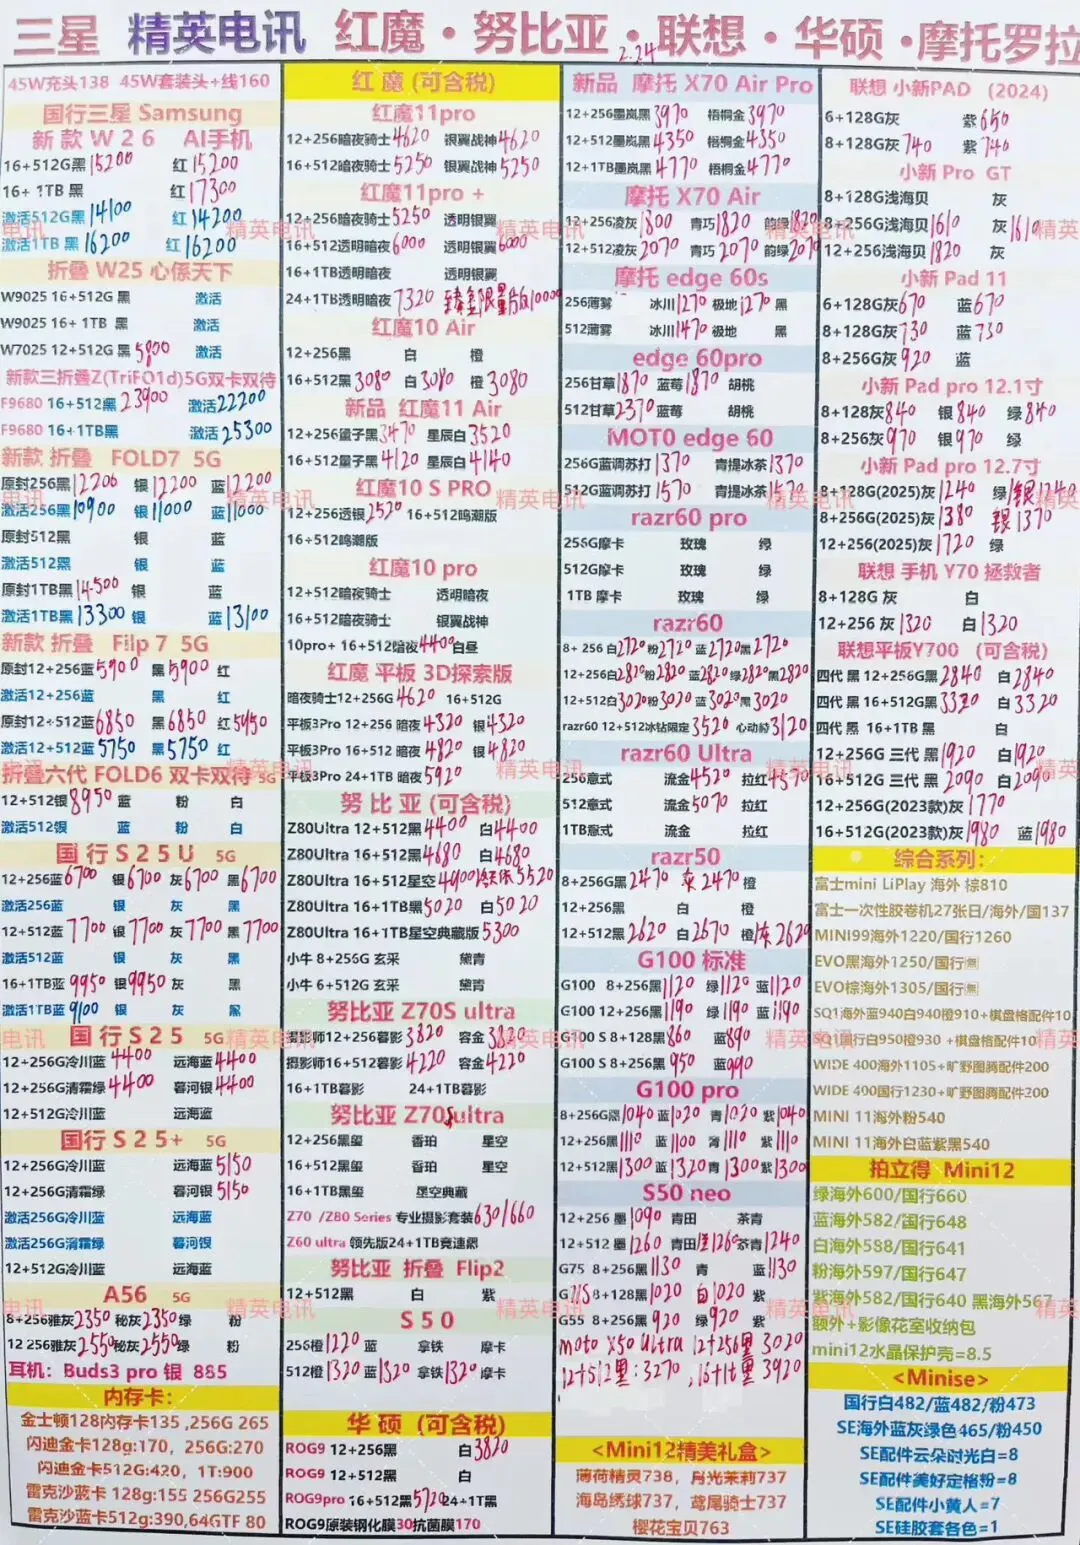 三星 精英电讯 红魔·努比亚·联想·华硕·摩托罗拉
2.24
45W充头138 45W套装头+线160
国行三星 Samsung
新款 W 2 6 AI手机
16+512G黑15200 红15200
16+ 1TB 黑 红17300
激活512G黑14100 红14200
激活1TB 黑16200 红16200
折叠 W25 心係天下
W9025 16+512G 黑 激活
W9025 16+ 1TB 黑 激活
W7025 12+512G 黑5800 激活
新款三折叠Z(TriFO1d)5G双卡双待
F9680 16+512黑23900 激活22200
F9680 16+1TB黑 激活25300
新款 折叠 FOLD7 5G
原封256黑12200 银12200 蓝12200
激活256黑10900 银11000 蓝11000
原封512黑 银 蓝
激活512黑 银 蓝
原封1TB黑14500 银 蓝
激活1TB黑13300 银 蓝13100
新款 折叠 Filp 7 5G
原封12+256蓝5900 黑5900 红
激活12+256蓝 黑 红
原封12+512蓝6850 黑6850 红5950
激活12+512蓝5750 黑5750 红
折叠六代 FOLD6 双卡双待 5G
12+512银8950 蓝 粉 白
激活512银 蓝 粉 白
国 行 S 2 5 U 5G
12+256蓝6700 银6700 灰6700 黑6700
激活256蓝 银 灰 黑
12+512蓝7700 银7700 灰7700 黑7700
激活512蓝 银 灰 黑
16+1TB蓝9950 银9950 灰 黑
激活1TB蓝9100 银 灰 黑
国 行 S 2 5 5G
12+256G冷川蓝4400 远海蓝4400
12+256G清霜绿4400 暮河银4400
12+512G冷川蓝 远海蓝
国行 S 2 5+ 5G
12+256G冷川蓝 远海蓝5150
12+256G清霜绿 暮河银5150
激活256G冷川蓝 远海蓝
激活256G清霜绿 暮河银
12+512G冷川蓝 远海蓝
A56 5G
8+256雅灰2350 秘灰2350 绿 粉
12 256雅灰2550 秘灰2550 绿 粉
耳机: Buds3 pro 银 885
内存卡:
金士顿128内存卡135 ,256G 265
闪迪金卡128g:170, 256G:270
闪迪金卡512G:420, 1T:900
雷克沙蓝卡 128g:155 256G255
雷克沙蓝卡512g:390,64GTF 80
红 魔 (可含税)
红魔11pro
12+256暗夜骑士4620 银翼战神4620
16+512暗夜骑士5250 银翼战神5250
红魔11pro +
12+256暗夜骑士5250 透明银翼
16+512透明暗夜6000 透明银翼6000
16+1TB透明暗夜 透明银翼
24+1TB透明暗夜7320 臻金限量版10000
红魔10 Air
12+256黑 白 橙
16+512黑3080 白3080 橙3080
新品 红魔11 Air
12+256量子黑3470 星辰白3520
16+512量子黑4120 星辰白4140
红魔10 S PRO
12+256透银2520 16+512鸣潮版
16+512鸣潮版
红魔10 pro
12+512暗夜骑士 透明暗夜
16+512暗夜骑士 银翼战神
10pro+ 16+512暗夜4400白昼
红魔 平板 3D探索版
暗夜骑士12+256G4620 16+512G
平板3Pro 12+256 暗夜4320 银4320
平板3Pro 16+512 暗夜4820 银4820
平板3Pro 24+1TB 暗夜5920
努 比 亚 (可含税)
Z80Ultra 12+512黑4400 白4400
Z80Ultra 16+512黑4680 白4680
Z80Ultra 16+512星空4900 5520
Z80Ultra 16+1TB黑5020 白5020
Z80Ultra 16+1TB星空典藏版5300
小牛 8+256G 玄采 黛青
小牛 6+512G 玄采 黛青
努比亚 Z70S ultra
摄影师12+256暮影3820 容金3820
摄影师16+512暮影4220 容金4220
16+1TB暮影 24+1TB暮影
努比亚 Z70Sultra
12+256黑玺 香珀 星空
16+512黑玺 香珀 星空
16+1TB黑玺 星空典藏
Z70 /Z80 Series 专业摄影套装630/660
Z60 ultra 领先版24+1TB竞速恩
努比亚 折叠 Flip2
12+512黑 白 紫
S 5 0
256橙1220 蓝 拿铁 摩卡
512橙1320 蓝1320 拿铁1320 摩卡
华 硕 (可含税)
ROG9 12+256黑 白3820
ROG9 12+512黑 白
ROG9pro 16+512黑5720 24+1T黑
ROG9原装钢化膜30抗菌膜170
新品 摩托 X70 Air Pro
12+256墨岚黑3970 梧桐金3970
12+512墨岚黑4350 梧桐金4350
12+1TB墨岚黑4770 梧桐金4770
摩托 X70 Air
12+256凌灰1800 青巧1820 韵绿1820
12+512凌灰2070 青巧2070 韵绿2070
摩托 edge 60s
256薄雾 冰川1270 极地1270 黑
512薄雾 冰川1470 极地 黑
edge 60pro
256甘草1870 蓝莓1870 胡桃
512甘草2370 蓝莓 胡桃
MOT0 edge 60
256G蓝调苏打1370 青提冰茶1370
512G蓝调苏打1570 青提冰茶1570
razr60 pro
256G摩卡 玫瑰 绿
512G摩卡 玫瑰 绿
1TB 摩卡 玫瑰 绿
razr60
8+ 256 白2720 粉2720 蓝2720 黑2720
12+256白2820 粉2820 蓝2820 绿2820 黑2820
12+512白3020 粉3020 蓝3020 黑3020
razr60 12+512冰钻限定3520 心动粉3120
razr60 Ultra
256意式 流金4520 拉红4570
512意式 流金5070 拉红
1TB意式 流金 拉红
razr50
8+256G黑2470 灰2470 橙
12+256黑 白 橙
12+512黑2620 白2670 橙灰2620
G100 标准
G100 8+256黑1120 绿1120 蓝1120
G100 12+256黑1190 绿1190 蓝1190
G100 S 8+128黑860 蓝890
G100 S 8+256黑950 蓝990
G100 pro
8+256G黑1040 蓝1020 青1020 紫1040
12+256黑1110 蓝1100 薄1110 紫1110
12+512黑1300 蓝1320 青1300 紫1300
S50 neo
12+256 墨1090 青田 茶青
12+512 墨1260 青田1260 茶青1240
G75 8+256黑1130 青 蓝1130
G75S 8+128黑1020 白1020 紫
G55 8+256黑920 绿920 紫
moto X50 Ultra 12+256黑 3020
12+512黑:3270 ,16+1t黑 3920
<Mini12精美礼盒>
薄荷精灵738, 月光茉莉737
海岛绣球737, 鸢尾骑士737
樱花宝贝763
联想 小新PAD (2024)
6+128G灰 紫650
8+128G灰740 紫740
小新 Pro GT
8+128G浅海贝 灰
8+256G浅海贝1610 灰1610
12+256浅海贝1820 灰
小新 Pad 11
6+128G灰670 蓝670
8+128G灰730 蓝730
8+256G灰920 蓝
小新 Pad pro 12.1寸
8+128灰840 银840 绿840
8+256灰970 银970 绿
小新 Pad pro 12.7寸
8+128G(2025)灰1240 绿/银1240
8+256G(2025)灰1380 银1370
12+256(2025)灰1720 绿
联想 手机 Y70 拯救者
8+128G 灰 白
12+256 灰1320 白1320
联想平板Y700 (可含税)
四代 黑 12+256G黑2840 白2840
四代 黑 16+512G黑3320 白3320
四代 黑 16+1TB 黑 白
12+256G 三代 黑1920 白1920
16+512G 三代 黑2090 白2090
12+256G(2023款)灰1770
16+512G(2023款)灰1980 蓝1980
综合系列:
富士mini LiPlay 海外 棕810
富士一次性胶卷机27张日/海外/国137
MINI99海外1220/国行1260
EVO黑海外1250/国行🈚
EVO棕海外1305/国行🈚
SQ1海外蓝940白940橙910+棋盘格配件10
SQ1国行白950橙930 +棋盘格配件10
WIDE 400海外1105+旷野图腾配件200
WIDE 400国行1230+旷野图腾配件200
MINI 11海外粉540
MINI 11海外白蓝紫黑540
拍立得 Mini12
绿海外600/国行660
蓝海外582/国行648
白海外588/国行641
粉海外597/国行647
紫海外582/国行640 黑海外567
额外+影像花室收纳包
mini12水晶保护壳=8.5
<Minise>
国行白482/蓝482/粉473
SE海外蓝灰绿色465/粉450
SE配件云朵时光白=8
SE配件美好定格粉=8
SE配件小黄人=7
SE硅胶套各色=1